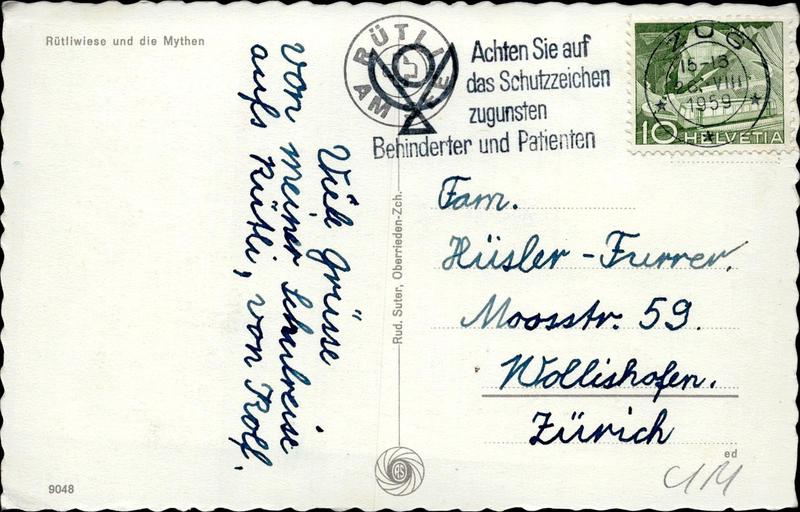 Rütliwiese und die Mythen
Viele Grüsse
von meiner Schulreise
aufs Rütli, von Rolf.
9048
Rud. Suter, Oberrieden-Zch.
RS
RÜTLI
AM SEE
Achten Sie auf
das Schutzzeichen
zugunsten
Behinderter und Patienten
ZUG
15-16
VIII
1959
10 HELVETIA
Fam.
Hüsler-Furrer.
Moosstr. 59.
Wollishofen.
Zürich
ed